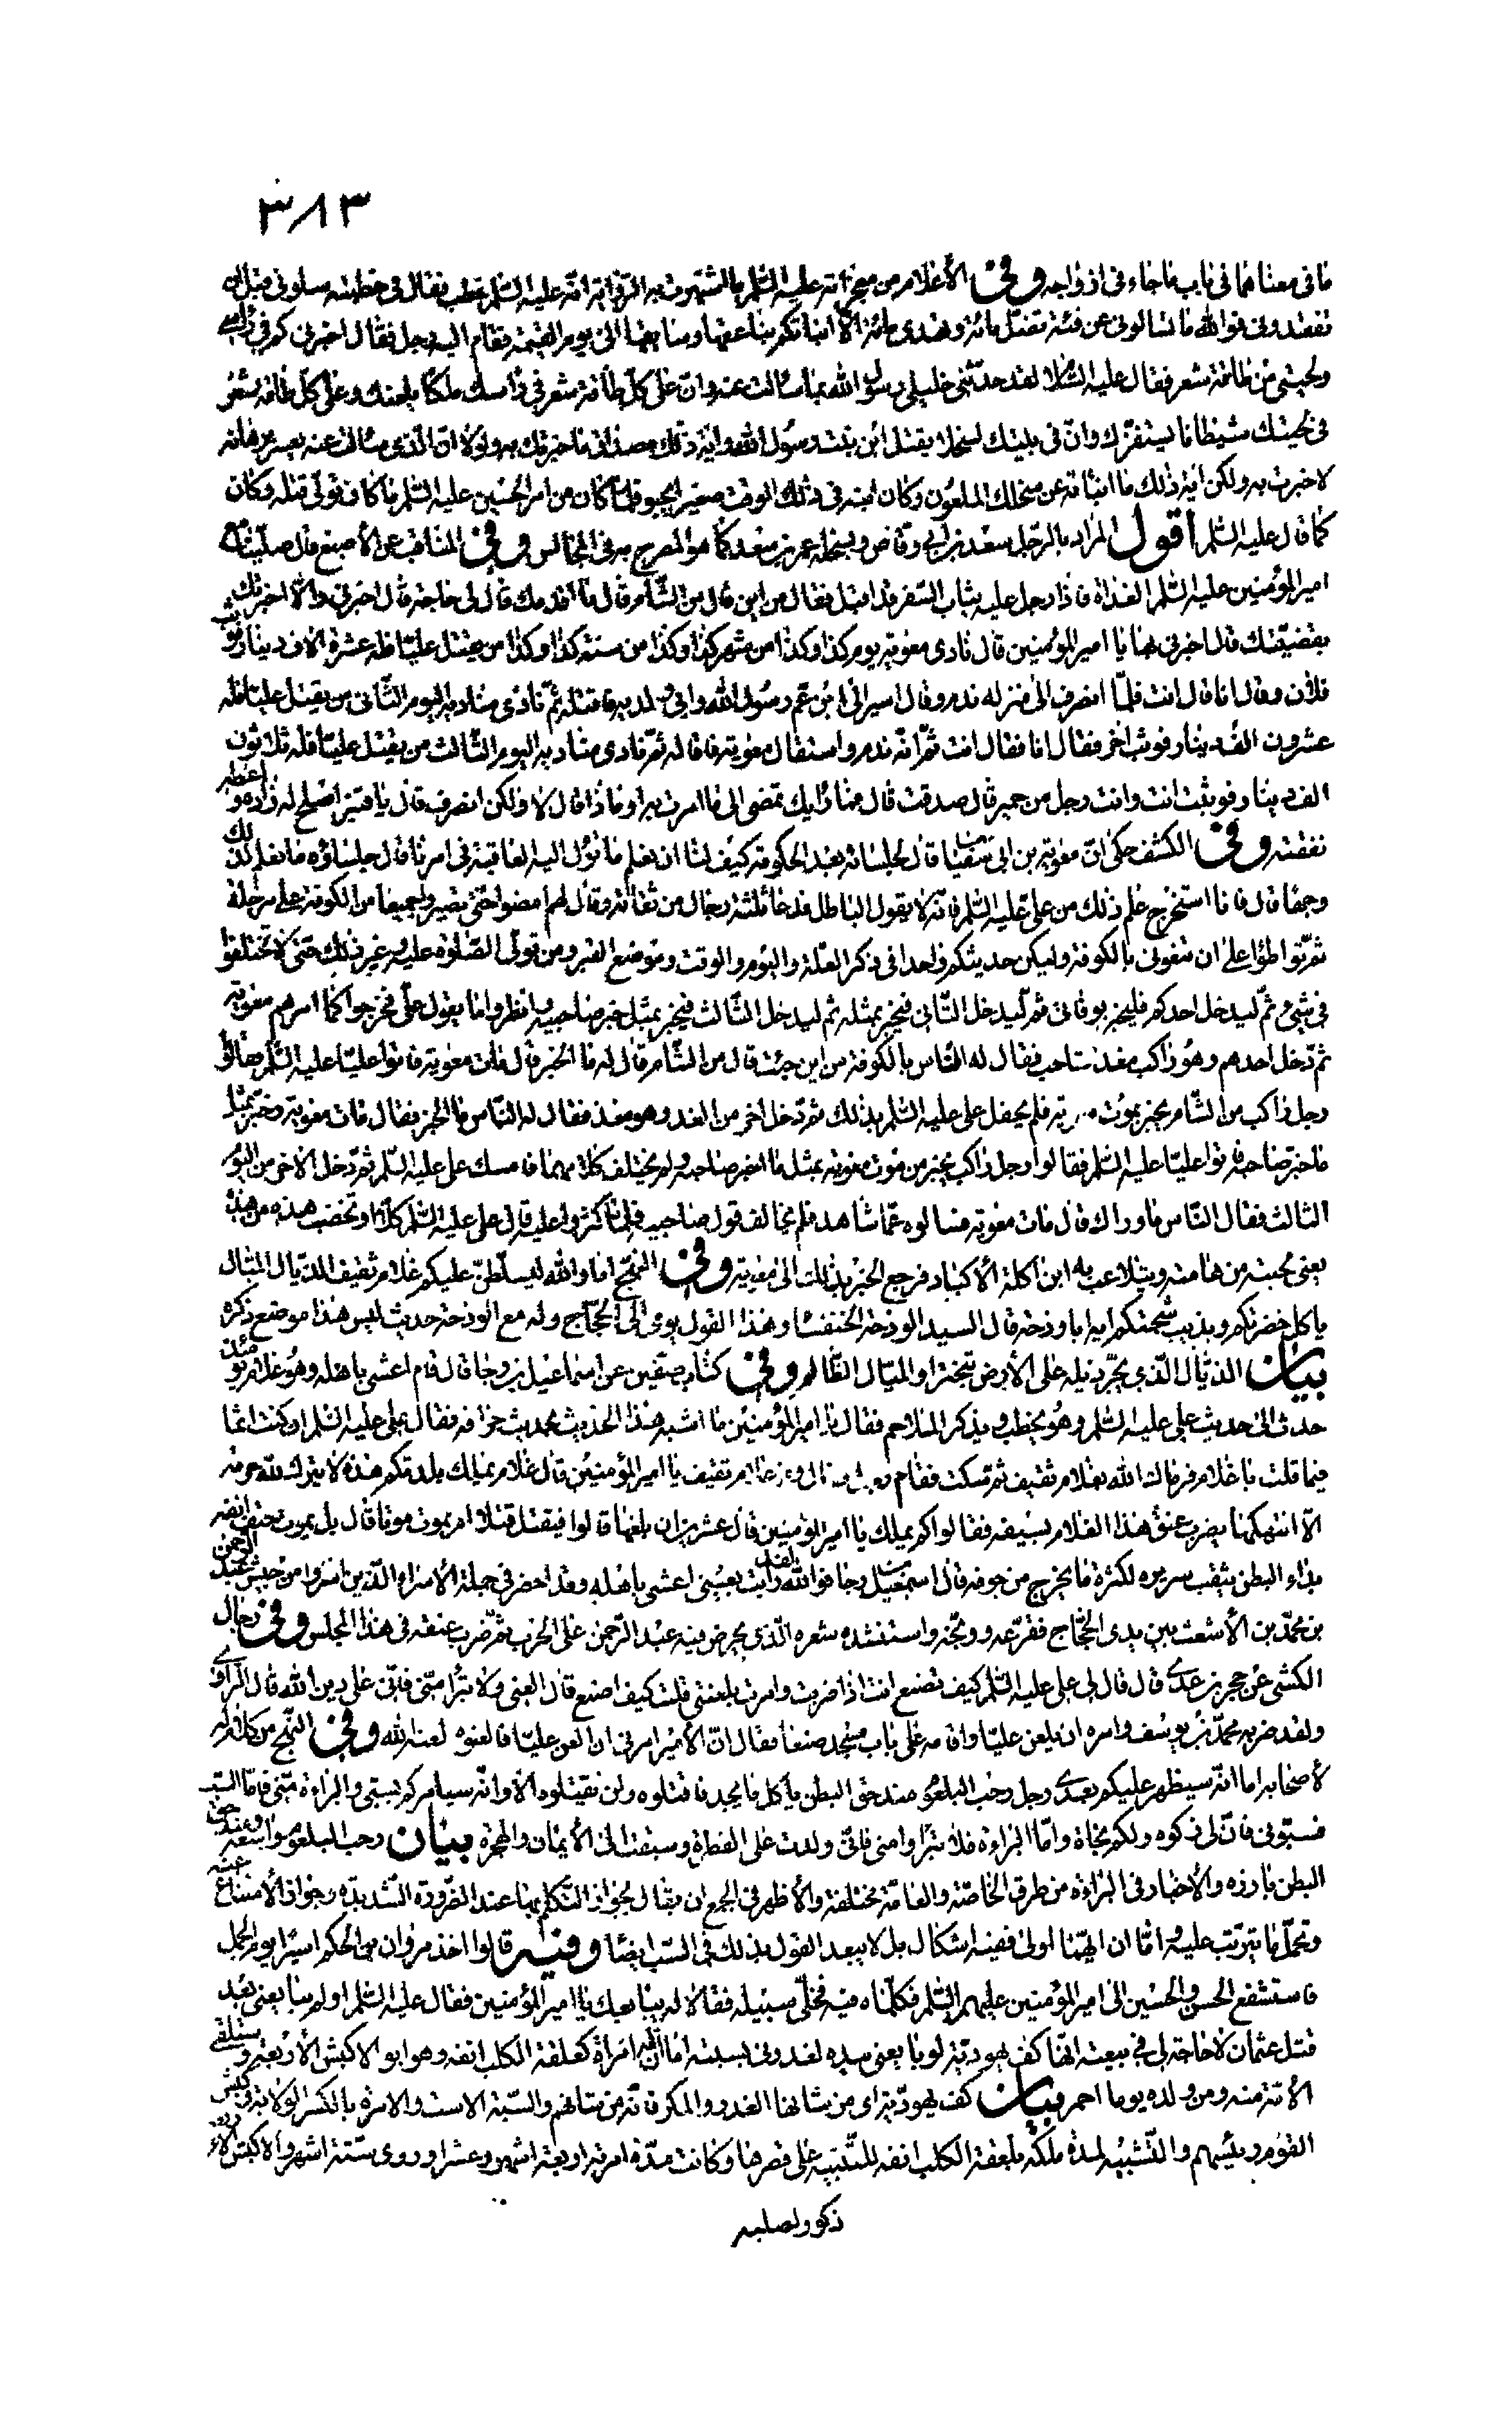 ٣٨٣
ما فى معناهما فى باب ما جاء فى ازواجه وفى الأعلام من معجزاته عليه السّلم ما اشتهرت به الرّوايه انّه عليه السّلم خطب فقال فى خطبته سلونى قبل ان
تفقدونى فوالله ما تسالونى عن فئة تضلّ مائة وتهدى مائة الّا انبأتكم بناعقها وسايقها الى يوم القيمة فقام اليه رجل فقال اخبرنى كم فى راسى
ولحيتى من طاقة شعر فقال عليه السّلام لقد حدّثنى خليلى رسول الله بما سألت عنه وانّ على كلّ طاقة شعر فى راسك ملكا يلعنك وعلى كلّ طاقة شعر
فى لحيتك شيطانا يستفزّك وانّ فى بيتك لسخلا يقتل ابن بنت رسول الله واية ذلك مصداق ما خبرتك به ولولا انّ الّذى سألت عنه يعسر برهانه
لاخبرت به ولكن اية ذلك ما انباته عن سخلك الملعون وكان ابنه فى ذلك الوقت صغيرا يحبو فلمّا كان من امر الحسين عليه السّلم ما كان تولّى قتله وكان
كما قال عليه السّلم اقول المراد بالرّجل سعد بن أبى وقاص وبسخله عمر بن سعد كما هو المصرح به فى المجالس وفى المناقب عن الأصبغ قال صلّينا مع
امير المؤمنين عليه السّلم الغداة فاذا رجل عليه ثياب السّفر قد اقبل فقال من اين قال من الشّام قال ما اقدمك قال لى حاجة قال اخبرنى والّا اخبرتك
بقضيّتك قال اخبرنى بها يا امير المؤمنين قال نادى معوية يوم كذا وكذا من شهر كذا وكذا من سنة كذا وكذا من يقتل عليّا فله عشرة الاف دينار فوثب
فلان وقال انا قال انت فلمّا انصرف الى منزله ندم وقال اسير الى ابن عمّ رسول الله وابى ولديه فاقتله ثمّ نادى مناديه اليوم الثّانى من يقتل عليّا فله
عشرون الف دينار فوثب اخر فقال انا فقال انت ثمّ انّه ندم واستقال معوية فاقاله ثمّ نادى مناديه اليوم الثّالث من يقتل عليّا فله ثلاثون
الف دينار فوثبت انت وانت رجل من حمير قال صدقت قال فما رايك تمضى الى ما امرت به او ماذا قال لا ولكن انصرف قال يا قنبر اصلح له زاده واعطه
نفقته وفى الكشف حكى انّ معوية بن ابى سفيان قال لجلسائه بعد الحكومة كيف لنا ان نعلم ما تؤل اليه العاقبة فى امرنا قال جلساؤه ما نعلم لذلك
وجها قال فانا استخرج علم ذلك من علىّ عليه السّلم فانّه لا يقول الباطل فدعا ثلثة رجال من ثقاته وقال لهم امضوا حتّى تصيروا جميعا من الكوفة على مرحلة
ثمّ تواطؤا على ان تنعونى بالكوفة وليكن حديثكم واحدا فى ذكر العلّة واليوم والوقت وموضع القبر ومن تولّى الصّلوة عليه وغير ذلك حتّى لا تختلفوا
فى شىء ثمّ ليدخل احدكم فليخبر بوفاتى ثمّ ليدخل الثّانى فيخبر بمثله ثم ليدخل الثّالث فيخبر بمثل خبر صاحبيه وانظروا ما يقول علىّ فخرجوا كما امرهم معوية
ثم دخل احدهم وهو راكب مغذ شاحب فقال له النّاس بالكوفة من اين جئت قال من الشّام قال له ما الخبر قال مات معوية فاتوا عليّا عليه السّلم فقالوا
رجل راكب من الشّام يخبر بموت معوية فلم يحفل علىّ عليه السّلم بذلك ثمّ دخل اخر من الغد وهو مغذ فقال له النّاس ما الخبر فقال مات معوية وخبّر بمثل
ما خبّر صاحبه فاتوا عليّا عليه السّلم فقالوا رجل راكب يخبر من موت معوية بمثل ما اخبر صاحبه ولم يختلف كلامهما فامسك علىّ عليه السّلم ثمّ دخل الاخر من اليوم
الثالث فقال النّاس ما وراك قال مات معوية فسالوه عمّا شاهد فلم يخالف قول صاحبيه فلمّا كثروا عليه قال علىّ عليه السّلم كلّا او تخضب هذه من هذه
يعنى لحيته من هامته ويتلاعب بها ابن اكلة الأكباد فرجع الخبر بذلك الى معوية وفى النهج اما والله ليسلّطنّ عليكم غلام ثقيف الذيّال الميّال
ياكل خضرتكم ويذيب شحمتكم ايه ابا وذحة قال السيد الوذحة الخنفساء وهذا القول يومى الى الحجّاج وله مع الوذحة حديث ليس هذا موضع ذكره
بيان الذيّال الّذى يجرّ ذيله على الأرض تبخترا والميّال الظّالم وفى كتاب صفّين عن اسماعيل بن رجا قال قام اعشى باهله وهو غلام يومئذ
حدث الى حديث على عليه السّلم وهو يخطب ويذكر الملاحم فقال يا امير المؤمنين ما اشبه هذا الحديث بحديث خرافه فقال على عليه السّلم ان كنت اثما
فيما قلت يا غلام فرماك الله بغلام ثقيف ثم سكت فقام رجال فقالوا ومن غلام ثقيف يا امير المؤمنين قال غلام يملك بلدتكم هذه لا يترك لله حرمة
الّا انتهكها يضرب عنق هذا الغلام بسيفه فقالوا كم يملك يا امير المؤمنين قال عشرين ان بلغها قالوا فيقتل قتلا ام يموت موتا قال بل يموت حتف انفه
بداء البطن يثقب سريره لكثرة ما يخرج من جوفه قال اسمعيل بن رجا فوالله لقد رأيت بعينى اعشى باهله وقد احضر فى جملة الأسراء الّذين اسروا من جيش عبد الرّحمن
بن محمّد بن الأشعث بين يدى الحجّاج فقرّعه ووبّخه واستنشده شعره الّذى يحرض فيه عبد الرّحمن على الحرب ثمّ ضرب عنقه فى هذا المجلس وفى رجال
الكشى عن حجر بن عدى قال قال لى على عليه السّلم كيف تصنع انت اذا ضربت وامرت بلعنتى قلت كيف اصنع قال العنّى ولا تبرّأ منّى فانّى على دين الله قال الراوى
ولقد ضربه محمّد بن يوسف وامره ان يلعن عليّا واقامه على باب مسجد صنعا فقال انّ الأمير امرنى ان العن عليّا فالعنوه لعنه الله وفى النّهج من كلام له
لأصحابه اما انّه سيظهر عليكم بعدى رجل رحب البلعوم مندحق البطن ياكل ما يجد فاقتلوه ولن تقتلوه الا وانّه سيامركم بسبّى والبراءة منّى فامّا السّب
فسبّونى فانّه لى زكوه ولكم نجاة وامّا البراءة فلا تبرّاوا منى فانّى ولدت على الفطرة وسبقت الى الأيمان والهجرة بيان رحب البلعوم واسعه ومندحق
البطن بارزه والأخبار فى البراءة من طرق الخاصّة والعامّة مختلفة والأظهر فى الجمع ان يقال بجواز التّكلّم بها عند الضّرورة الشّديدة وجواز الأمتناع عنه
وتحمّل ما يترتّب عليه وامّا ان ايّهما اولى ففيه اشكال بل لا يبعد القول بذلك فى السّب ايضا وفيه قالوا اخذ مروان بن الحكم اسيرا يوم الجمل
فاستشفع الحسن والحسين الى امير المؤمنين عليهم السّلم فكلّماه فيه فخلّى سبيله فقالا له يبايعك يا امير المؤمنين فقال عليه السّلم اولم يبايعنى بعد
قتل عثمان لا حاجة لى فى بيعته انّها كفّ يهوديّة لو بايعنى بيده لغدر بى بسبته اما انّ له امرأة كعلقة الكلب انفه وهو ابو الاكبش الأربعة وستلقى
الأمّة منه ومن ولده يوما احمر بيان كفّ يهوديّة اى من شانها الغدر والمكر فانّه من شانهم والسّبة الاست والامرة بالكسر الولاية وكبش
القوم رئيسهم والتّشبيه لمدّة ملكه بلعقة الكلب انفه للتّنبيه على قصرها وكانت مدّة امرته اربعة اشهر وعشرا وروى ستّة اشهر والاكبش الأربعة
ذكور لصلبه